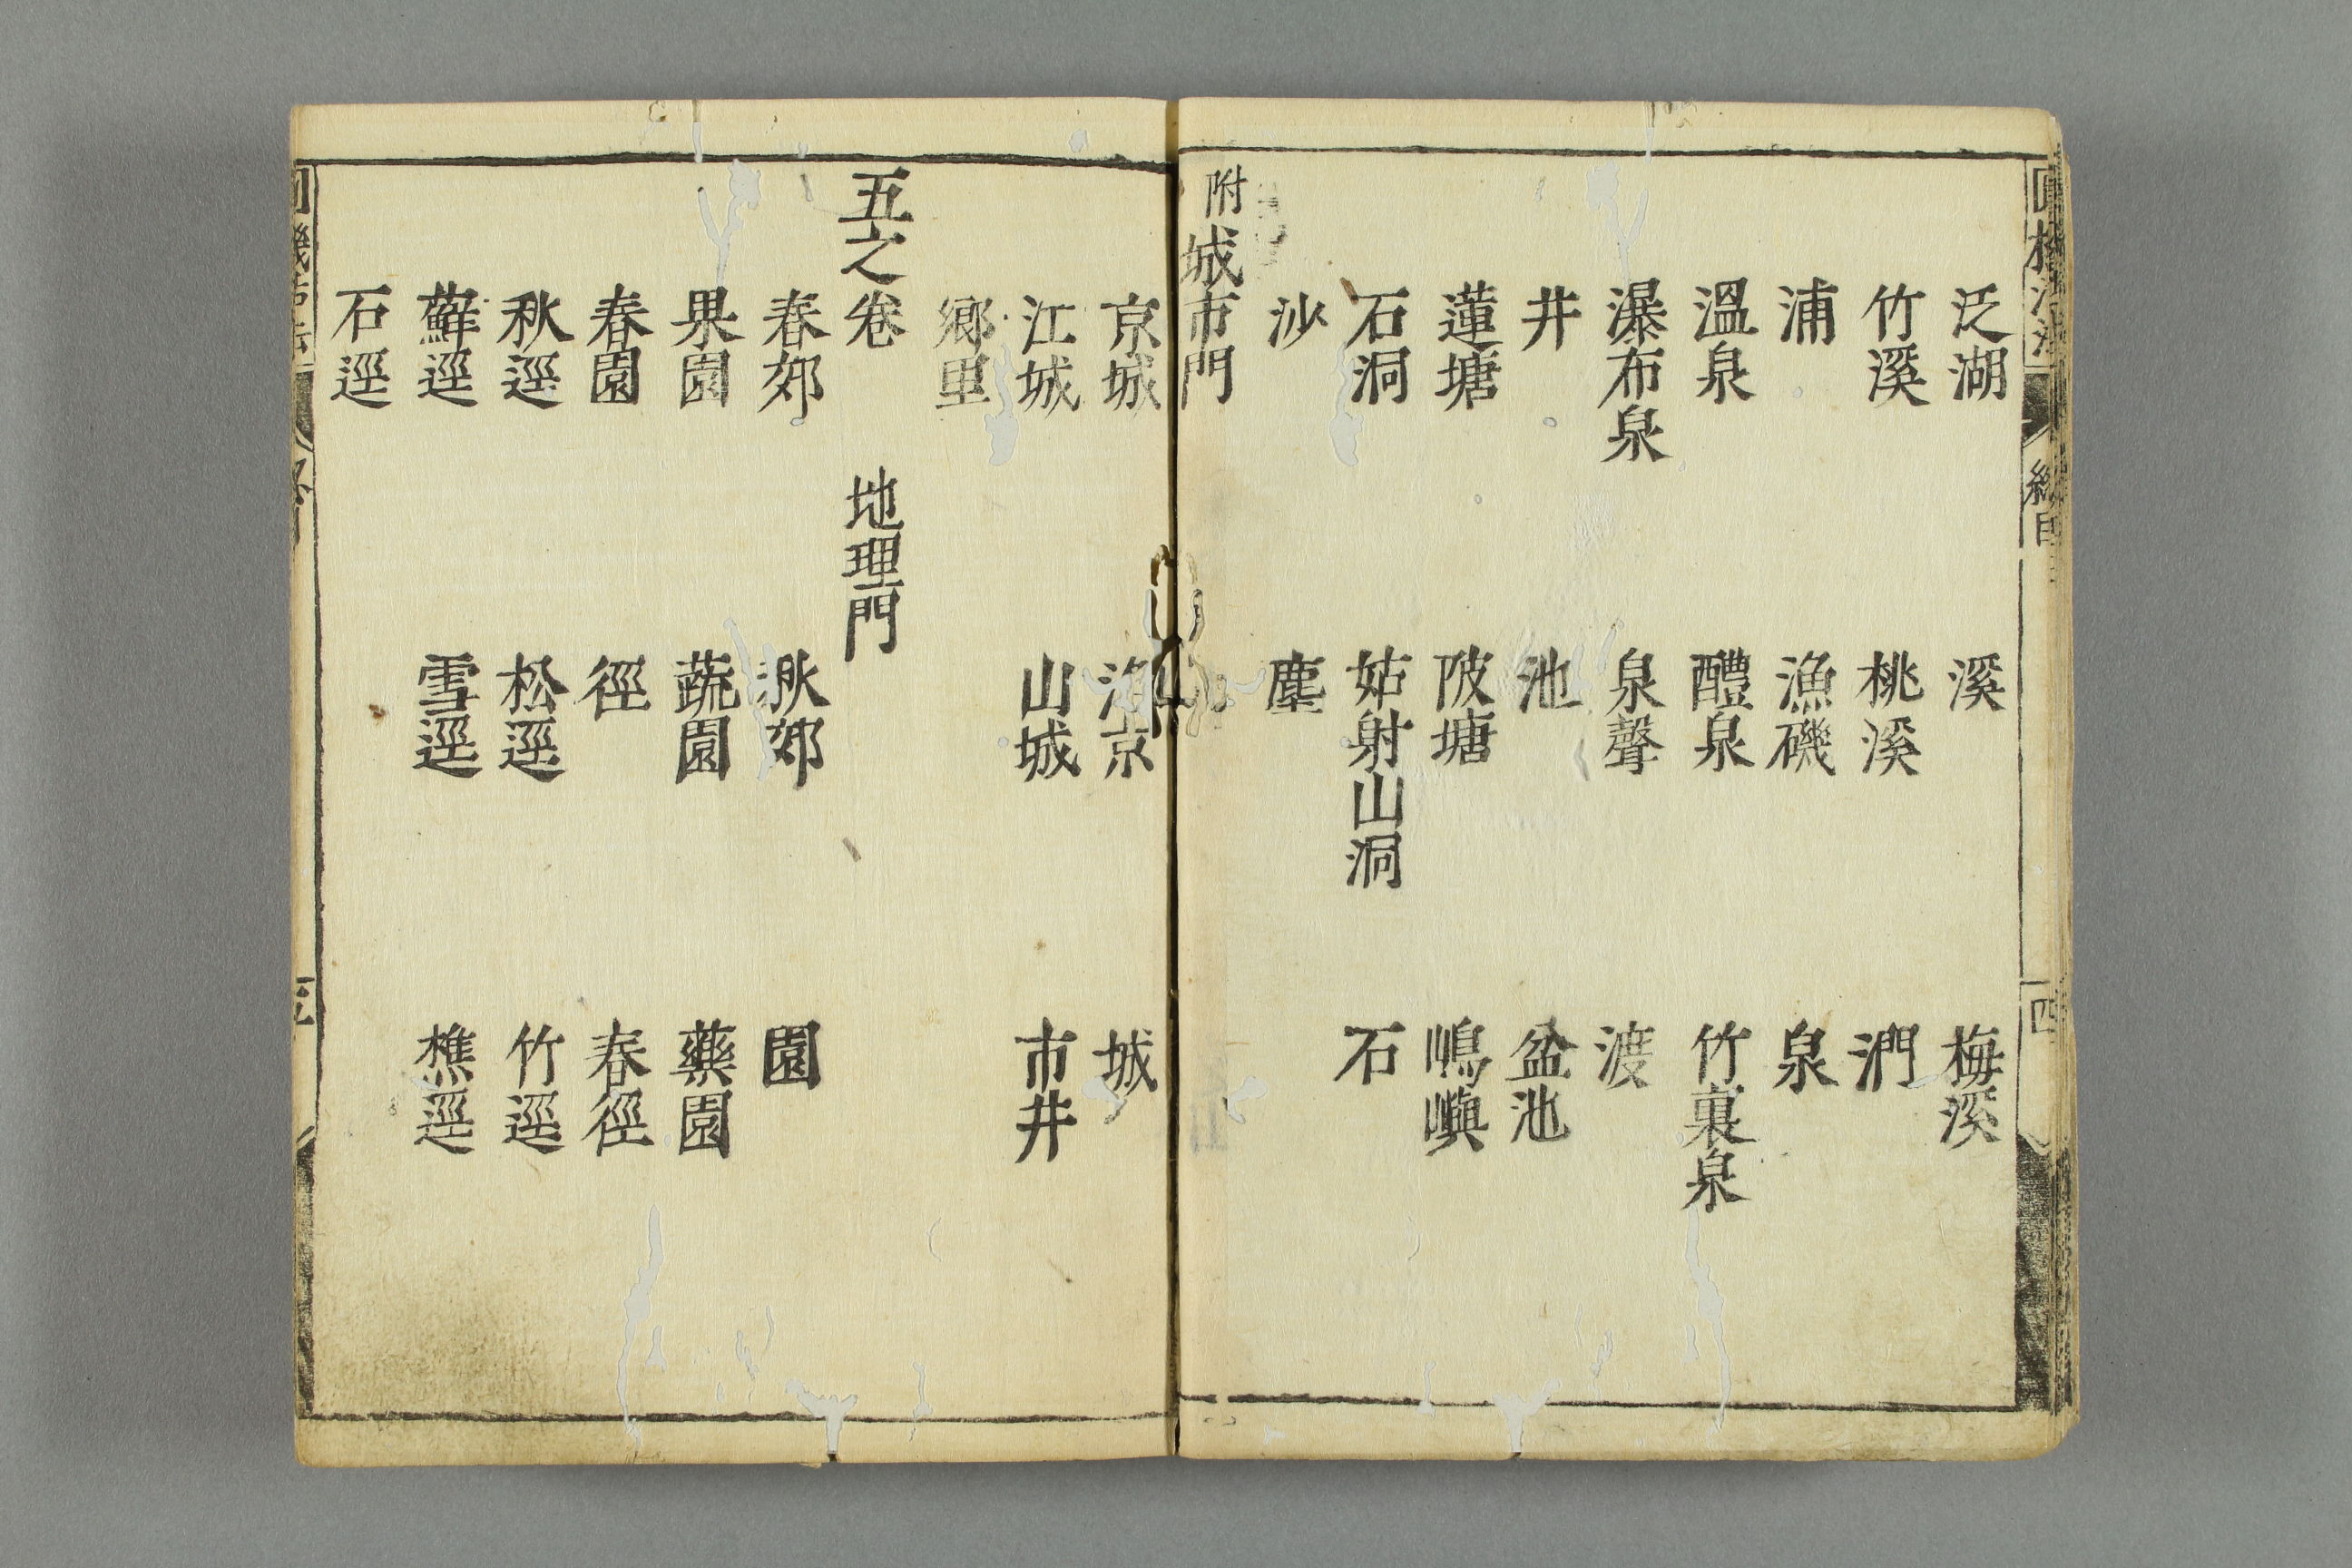 泛湖 溪 梅溪
竹溪 桃溪 澗
浦 漁磯 泉
溫泉 醴泉 竹裏泉
瀑布泉 泉聲 渡
井 池 盆池
蓮塘 陂塘 嶋嶼
石洞 姑射山洞 石
沙 塵
附城市門
京城 洛京 城
江城 山城 市井
鄉里
五之卷 地理門
春郊 秋郊 園
果園 蔬園 藥園
春園 徑 春徑
秋逕 松逕 竹逕
蘚逕 雪逕 樵逕
石逕
總目
四